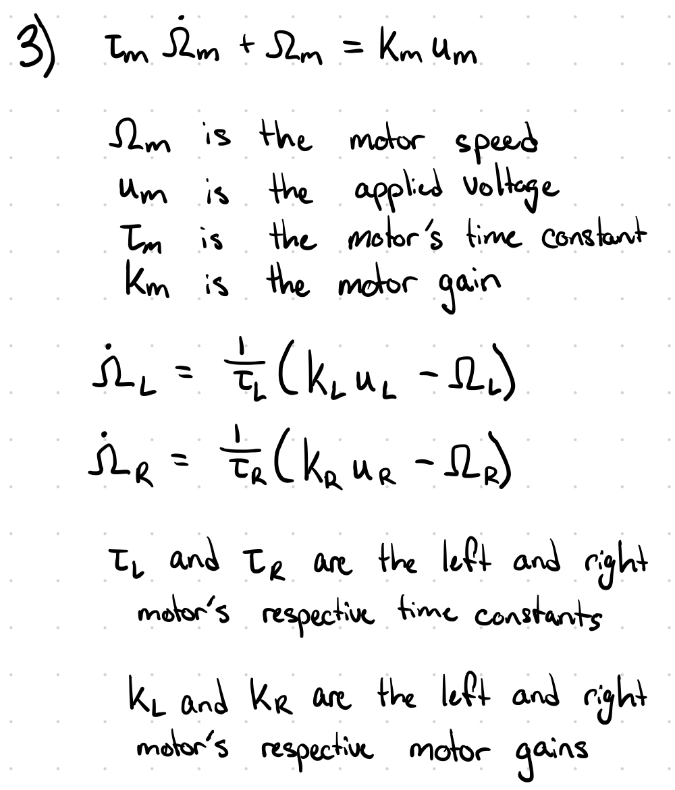 3) τm Ω̇m + Ωm = Km um
Ωm is the motor speed
um is the applied voltage
τm is the motor's time constant
Km is the motor gain
Ω̇L = 1/τL (KL uL - ΩL)
Ω̇R = 1/τR (KR uR - ΩR)
τL and τR are the left and right
motor's respective time constants
KL and KR are the left and right
motor's respective motor gains